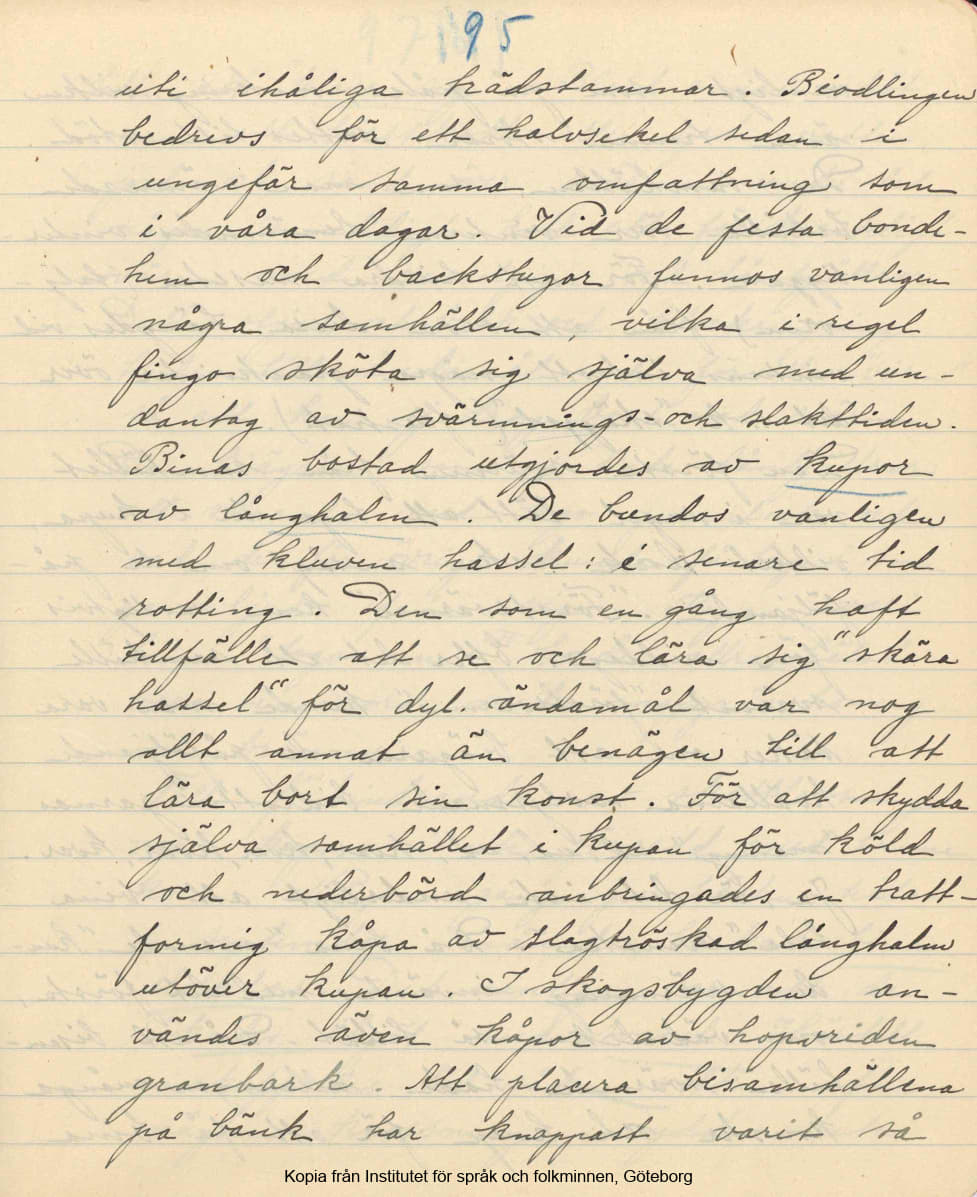 195
uti ihåliga trädstammar. Biodlingen
bedrevs för ett halvsekel sedan i
ungefär samma omfattning som
i våra dagar. Vid de festa bonde-
hem och backstugor funnos vanligen
några samhällen, vilka i regel
fingo sköta sig själva med un-
dantag av svärmnings- och slakttiden.
Binas bostad utgjordes av kupor
av långhalm. De bundos vanligen
med kluven hassel: i senare tid
rotting. Den som en gång haft
tillfälle att se och lära sig "skära
hassel" för dyl. ändamål var nog
allt annat än benägen till att
lära bort sin konst. För att skydda
själva samhället i kupan för köld
och nederbörd anbringades en tratt-
formig kåpa av slagtröskad långhalm
utöver kupan. I skogsbygden an-
vändes även kåpor av hopvriden
granbark. Att placera bisamhällena
på bänk har knappast varit så
Kopia från Institutet för språk och folkminnen, Göteborg